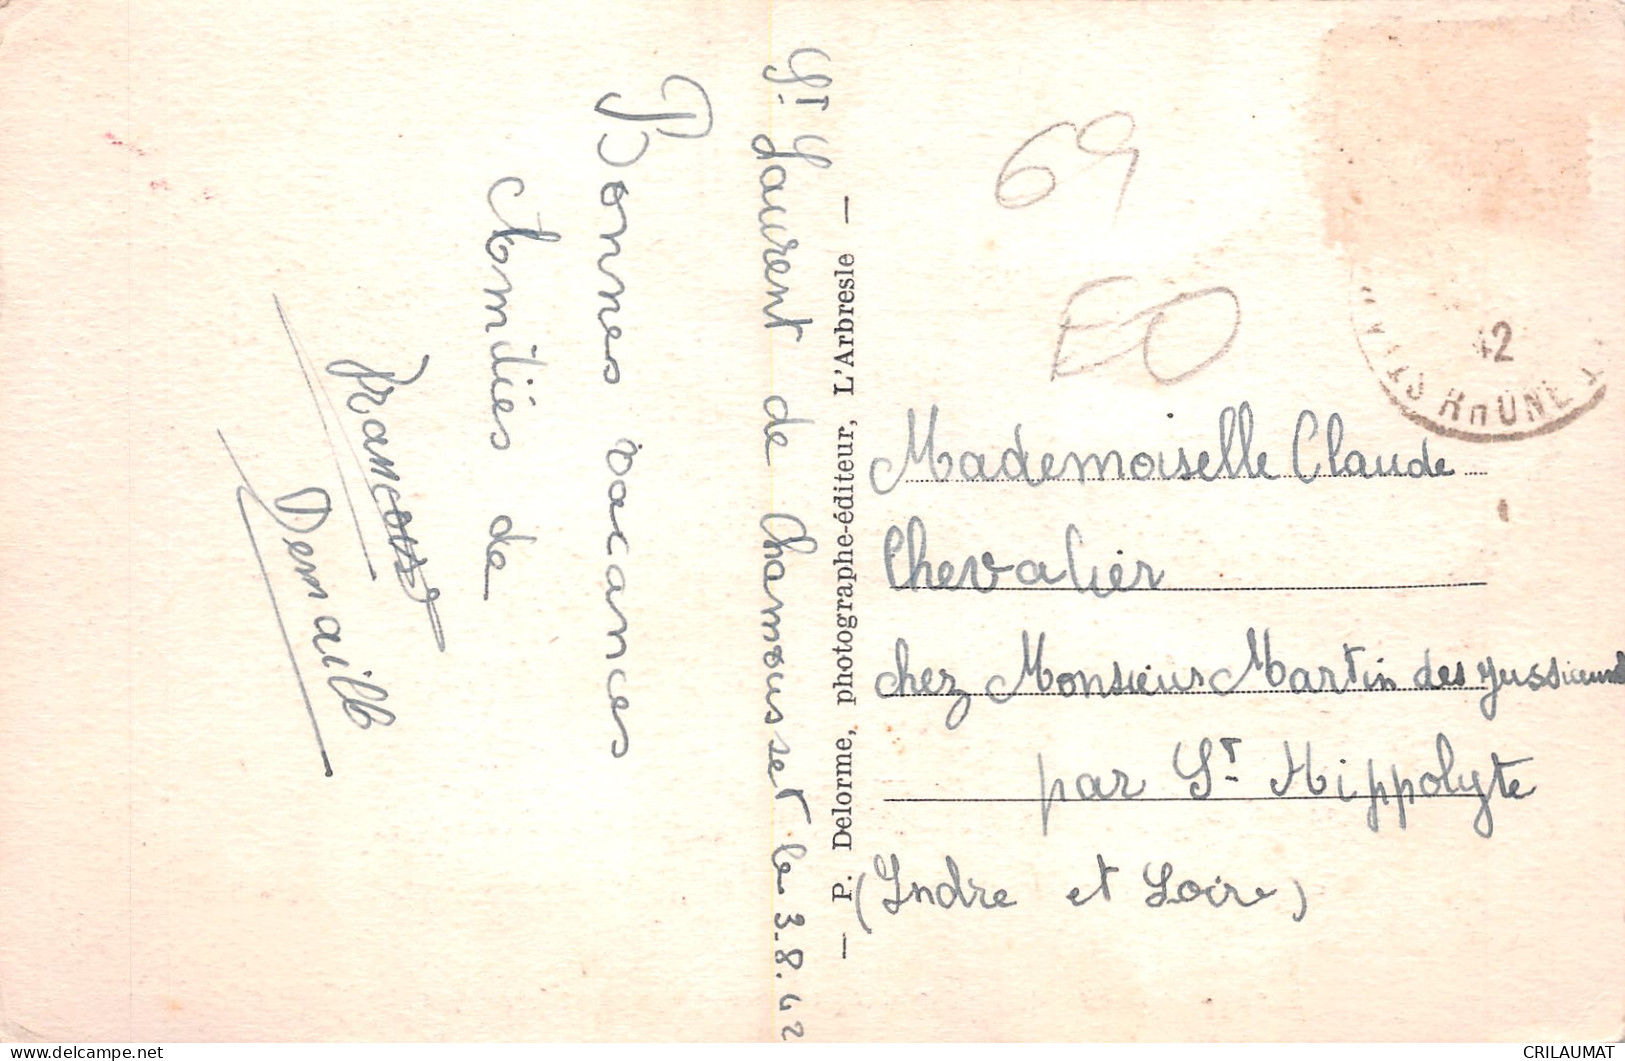 St Laurent de Chamousset le 3.8.42
Bonnes vacances
Amitiés de
François
Demailly
— P. Delorme, photographe-éditeur, L'Arbresle —
69
EO
42
RHÔNE
Mademoiselle Claude
Chevalier
chez Monsieur Martin des
par St Hippolyte
(Indre et Loire)
CRILAUMAT